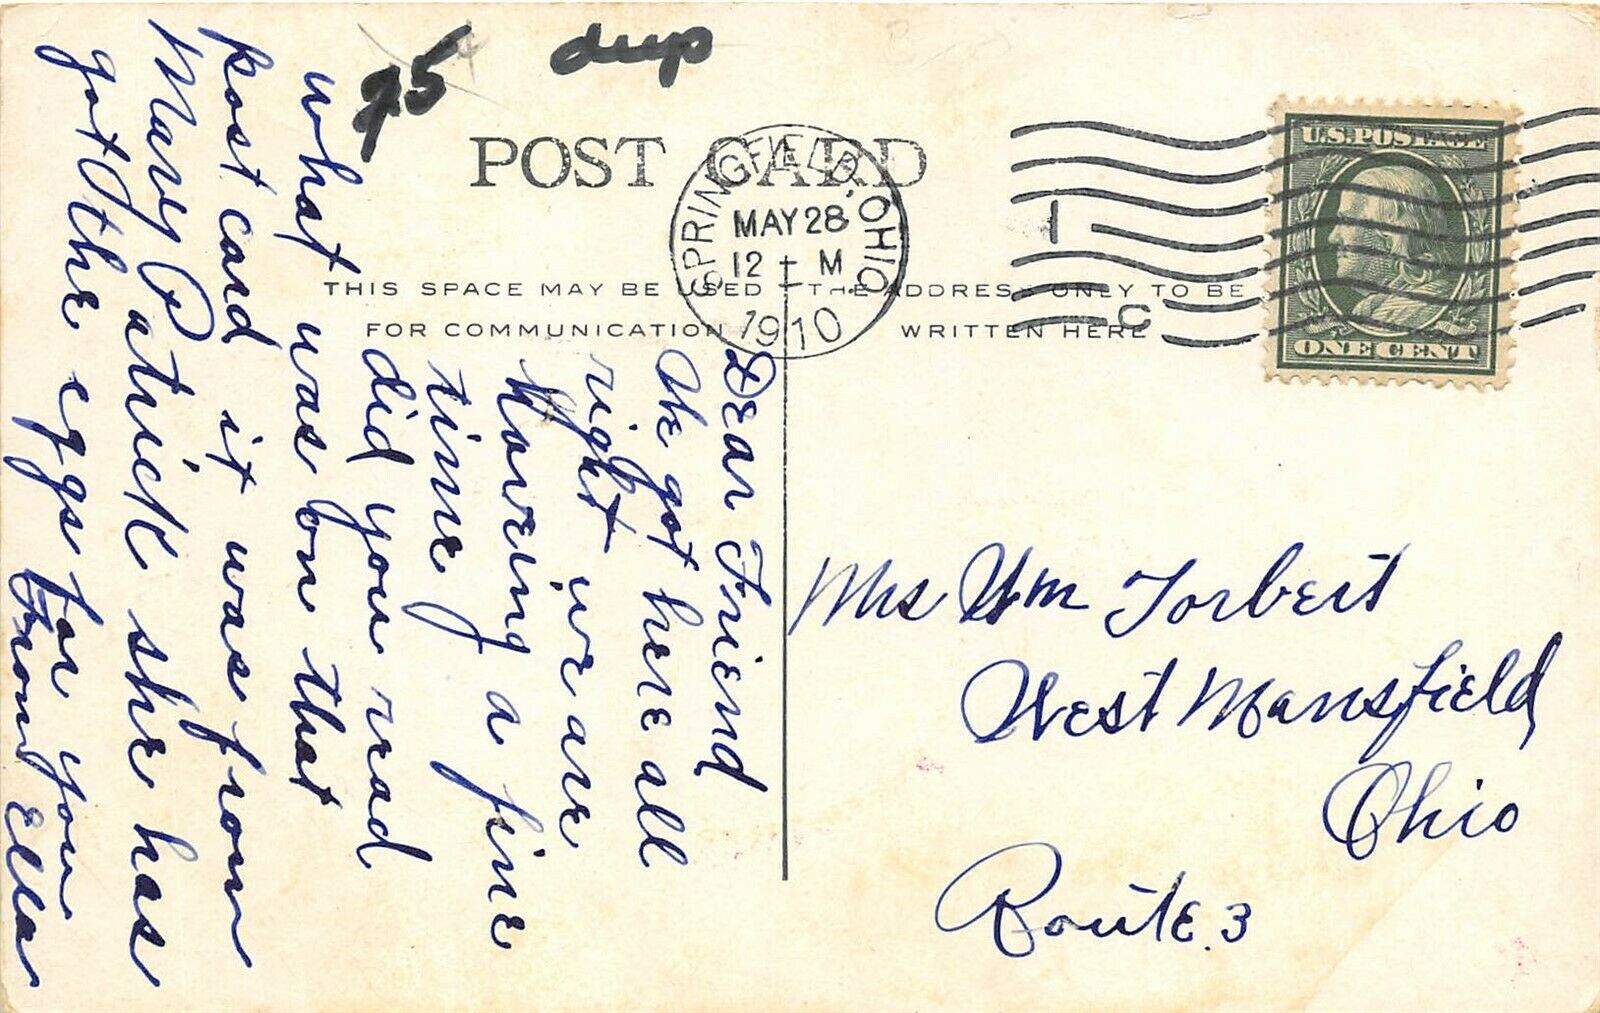 75 dup
POST CARD
SPRINGFIELD, OHIO.
MAY 28
12 - M
1910
1
C
U.S. POSTAGE
ONE CENT
THIS SPACE MAY BE USED
FOR COMMUNICATION
THE ADDRESS ONLY TO BE
WRITTEN HERE
Dear Friend
We got here all
right we are
Haveing a fine
time
did you read
what was on that
post card it was from
Mary Patrick she has
got the eggs for you
From Ella
Mrs Wm Torbert
West Mansfield
Ohio
Route. 3